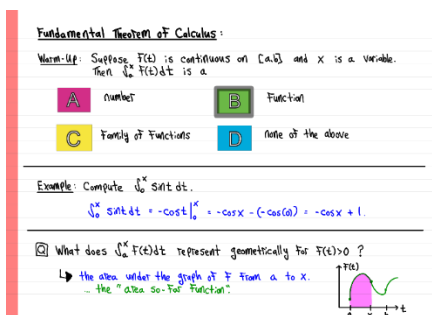 Fundamental Theorem of Calculus:
Warm-Up: Suppose f(t) is continuous on [a,b] and x is a variable.
Then ∫ₐˣ f(t)dt is a
A number
B Function
C Family of Functions
D none of the above
Example: Compute ∫₀ˣ sint dt.
∫₀ˣ sint dt = -cost|₀ˣ = -cosx - (-cos(0)) = -cosx + 1.
Q What does ∫ₐˣ f(t)dt represent geometrically for f(t)>0 ?
↳ the area under the graph of f from a to x.
... the "area so-far function".
f(t)
a x b t